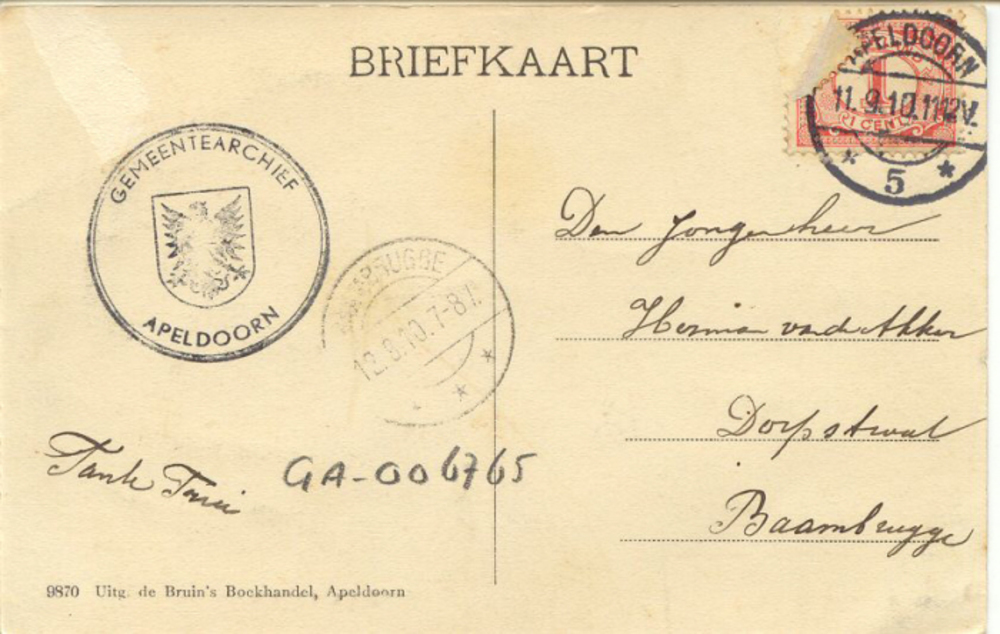 BRIEFKAART
APELDOORN
11.9.10.11-12V.
5
1
CENT
GEMEENTEARCHIEF
APELDOORN
BAAMBRUGGE
12.9.10.7-8V.
Den Jongenheer
Herman vanden Akker
Dorpstraat
Baambrugge
Tante
GA-006765
9870 Uitg. de Bruin's Boekhandel, Apeldoorn